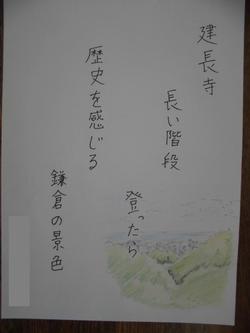 建長寺
長い階段
登ったら
歴史を感じる
鎌倉の景色